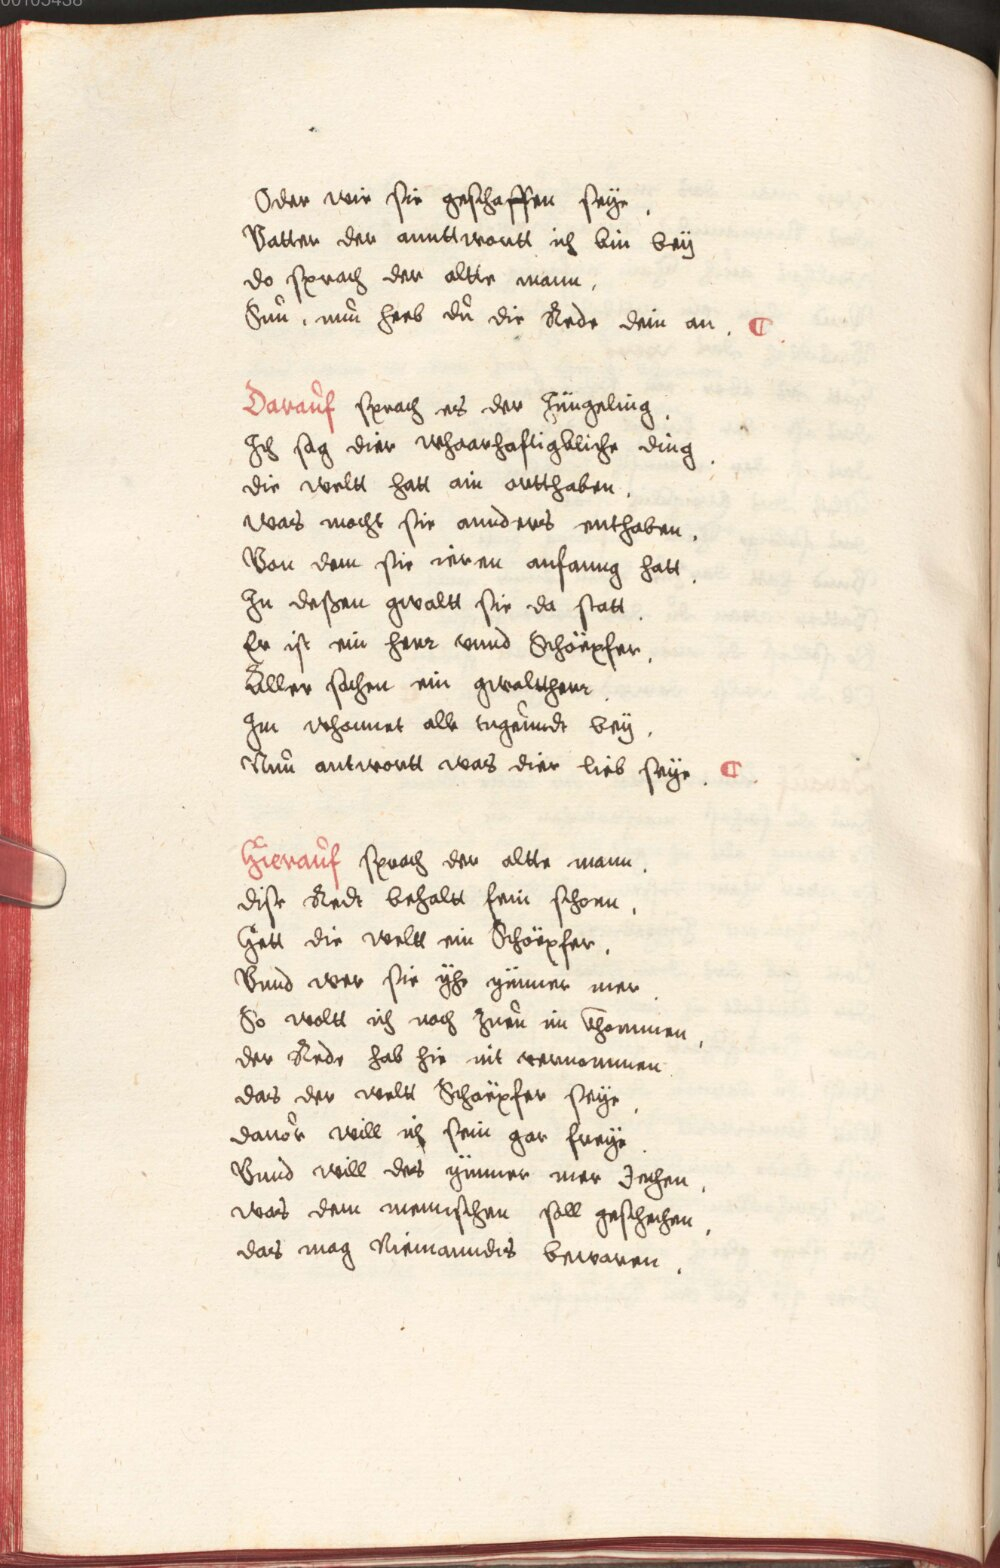 00103438
Oder wie sie geschaffen seÿe.
Vatter der anntwortt ich bin beÿ
do sprach der altte mann,
Sun, nun heb du die Rede dein an.
Darauf sprach es der Jungeling.
Ich sag dier whaarhafftigkliche ding.
die weltt hatt ain ortthaben.
was mocht sie annders enthaben.
Von dem sie ieren anfanng hatt.
In deßen gwaltt sie da statt.
Er ist ein herr vnnd Schöepfer.
Aller sachen ein gwalttherr.
Im whonnet alle tugenndt beÿ.
Nun antwortt was dier lieb seÿe.
Hierauf sprach der altte mann.
dise Redt behaltt fein schoen.
Hett die weltt ein Schöepfer.
Vnnd wer sie ÿhe ÿmmer mer
So woltt ich noch Zuu im khommen.
der Rede hab hie nit vernommen
das der weltt Schöepfer seÿe.
dauor will ich sein gar freÿe
Vnnd will des ÿmmer mer Jechen.
was dem mennschen soll geschechen,
das mag Niemanndes bewaren.